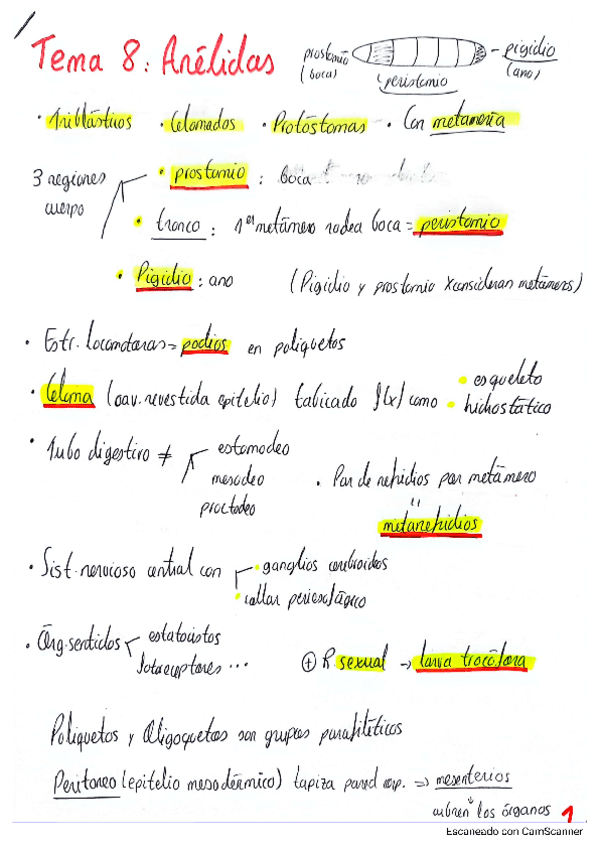 Tema 8: Anélidos
prostomio (boca)
peristomio
pigidio (ano)
· Triblásticos · Celomados · Protóstomos · Con metamería
3 regiones cuerpo
· prostomio : boca
· tronco : 1er metámero rodea boca = peristomio
· Pigidio : ano (Pigidio y prostomio X consideran metámeros)
· Estr. locomotoras = podios en poliquetos
· Celoma (cav. revestida epitelio) tabicado f(x) como · esqueleto
· hidrostático
· Tubo digestivo ≠ estomodeo
mesodeo
proctodeo
· Par de nefridios por metámero
"
metanefridios
· Sist. nervioso central con · ganglios cerebroides
· collar periesofágico
· Órg. sentidos estatocistos
fotorreceptores ...
⊕ R. sexual → larva trocófora
Poliquetos y Oligoquetos son grupos parafiléticos
Peritoneo (epitelio mesodérmico) tapiza pared corp. ⇒ mesenterios
↓
cubren los órganos 1
Escaneado con CamScanner